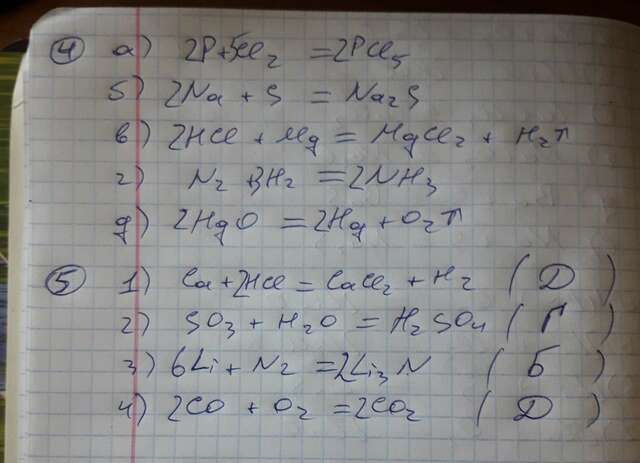 4 а) 2P+5Cl₂ = 2PCl₅
б) 2Na + S = Na₂S
в) 2HCl + Mg = MgCl₂ + H₂↑
г) N₂ + 3H₂ = 2NH₃
д) 2HgO = 2Hg + O₂↑
5 1) Ca + 2HCl = CaCl₂ + H₂ (Д)
2) SO₃ + H₂O = H₂SO₄ (Г)
3) 6Li + N₂ = 2Li₃N (Б)
4) 2CO + O₂ = 2CO₂ (Д)